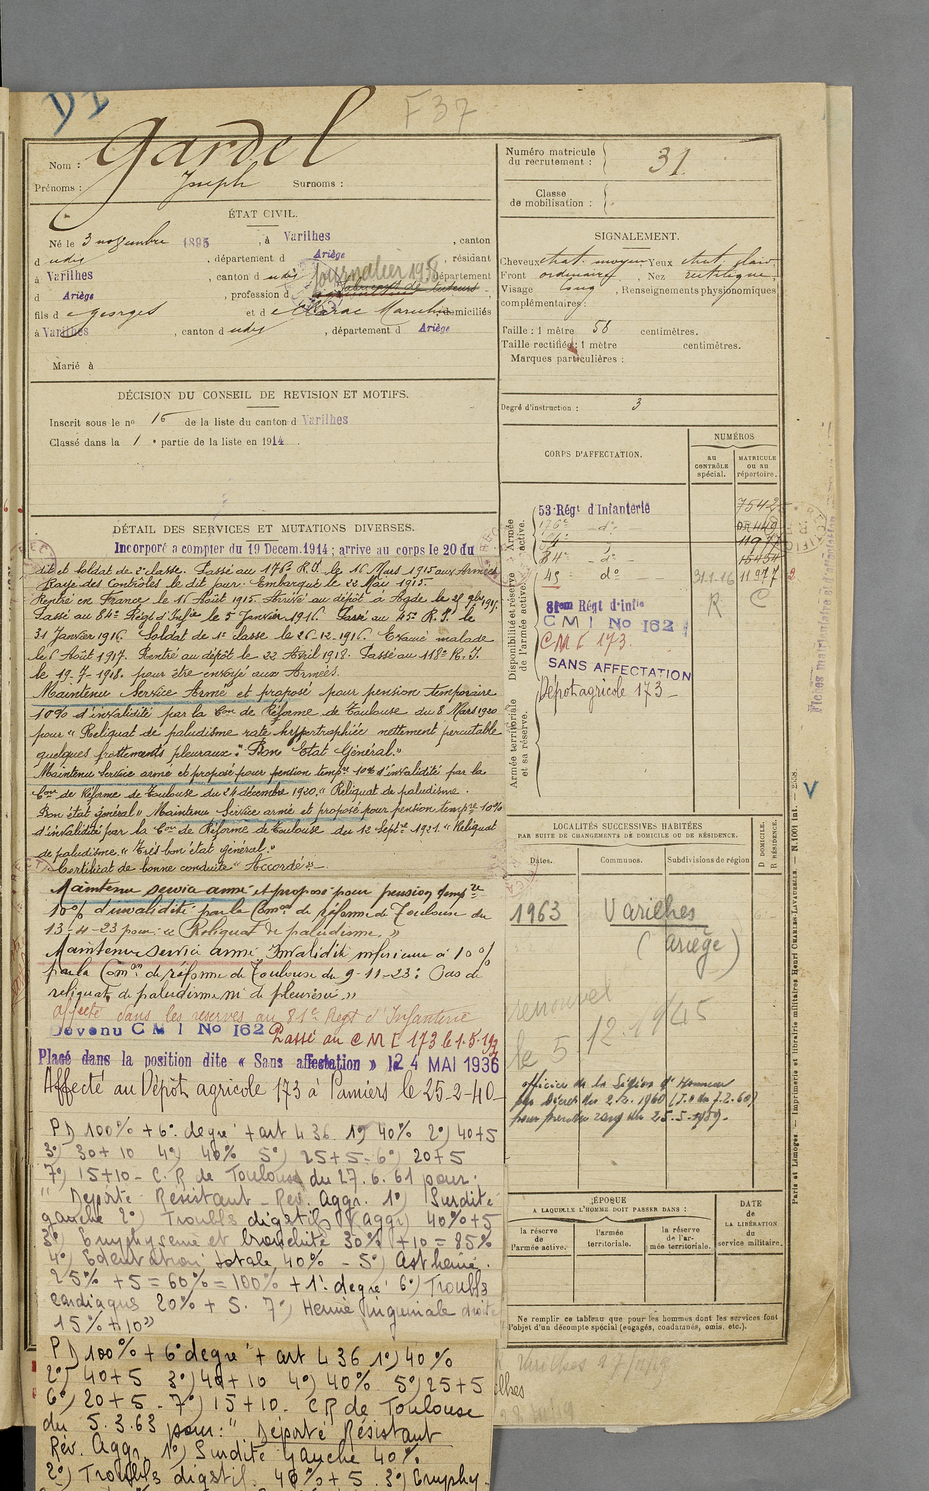 F 37
Nom : Gardel
Prénoms : Joseph Surnoms :
ÉTAT CIVIL.
Né le 3 novembre 1895, à Varilhes, canton
d udis, département d Ariège, résidant
à Varilhes, canton d udis, département
d Ariège, profession d Journalier 1938
fils d e Georges et d e domiciliés
à Varilhes, canton d udis, département d Ariège
Marié à
DÉCISION DU CONSEIL DE REVISION ET MOTIFS.
Inscrit sous le no 16 de la liste du canton d Varilhes
Classé dans la 1 e partie de la liste en 1914
DÉTAIL DES SERVICES ET MUTATIONS DIVERSES.
Incorporé a compter du 19 Decem. 1914 ; arrive au corps le 20 du
dit et soldat de 2e classe. Passé au 176e R.I. le 16 Mars 1915 aux Armées
Rayé des contrôles le dit jour. Embarqué le 22 Mai 1915.
Rentré en France le 16 Août 1915. Arrivé au dépôt à Agde le
Passé au 84e Régt d'Infie le 5 Janvier 1916. Passé au 45e R.I. le
31 Janvier 1916. Soldat de 1e classe le 26.12.1916. Evacué malade
le 6 Août 1917. Rentré au dépôt le 22 Avril 1918. Passé au 118e R.I.
le 19-7-1918. pour être envoyé aux Armées.
Maintenu Service Armé et proposé pour pension temporaire
10% d'invalidité par la Con de Réforme de Toulouse du 8 Mars 1920
pour "Reliquat de paludisme rate hypertrophiée nettement percutable
quelques frottements pleuraux. Bon Etat Général."
Maintenu service armé et proposé pour pension tempre 10% d'invalidité par la
Con de Réforme de Toulouse du 24 décembre 1920. "Reliquat de paludisme.
Bon état général" Maintenu Service armé et proposé pour pension tempre 10%
d'invalidité par la Con de Réforme de Toulouse du 12 Septre 1921 "Reliquat
de paludisme." Très bon état général."
Certificat de bonne conduite "Accordé" -
Maintenu service armé et proposé pour pension tempre
10% d'invalidité par la Comon de réforme de Toulouse du
13-4-23 pour : "Reliquat de paludisme."
Maintenu service armé Invalidité inférieure à 10%
par la Comon de réforme de Toulouse du 9-11-23 : Pas de
reliquat de paludisme ni de pleurésie"
Affecté dans les reserves au 81e Regt d'Infanterie
Devenu C M I No 162 Passé au C M I 173 le 1.5.
Placé dans la position dite « Sans affectation » le 24 MAI 1936
Affecté au Dépôt agricole 173 à Pamiers le 25-2-40
P D 100% + 6° degré + art L 36 1°) 40% 2°) 40+5
3°) 30+10 4°) 40% 5°) 25+5 - 6°) 20+5
7°) 15+10 - C.R de Toulouse du 27.6.61 pour :
" Déporté Résistant - Rev. Aggr. 1°) Surdité
gauche 2°) Troubles digestifs (aggr) 40%+5
3°) Emphyseme et bronchite 30% +10 = 85%
4°) Edentation totale 40% - 5°) Asthenie.
25% +5 = 60% = 100% + 1° degré 6°) Troubles
cardiaques 20% + 5. 7°) Hernie inguinale droite
15% +10"
P D 100% + 6° degré + art L 36 1°) 40%
2°) 40+5 3°) 40+10 4°) 40% 5°) 25+5
6°) 20+5 - 7°) 15+10. CR de Toulouse
du 5.3.63 pour : " Déporté Résistant
Rev. Aggr. 1°) Surdité gauche 40%
2°) Troubles digestifs 40% + 5 . 3°) Emphy-
Numéro matricule du recrutement : 31
Classe de mobilisation :
SIGNALEMENT.
Cheveux chat. moyen Yeux chat. clair
Front ordinaire, Nez rectiligne.
Visage long, Renseignements physionomiques
complémentaires :
Taille : 1 mètre 58 centimètres.
Taille rectifiée : 1 mètre centimètres.
Marques particulières :
Degré d'instruction : 3
CORPS D'AFFECTATION.
NUMÉROS
au CONTRÔLE spécial.
MATRICULE ou au répertoire.
Armée active.
53e Régt d'Infanterie 7542
176e - do -
84e - do -
45 - do 31-1-16 11977
Disponibilité et réserve de l'armée active.
81eme Régt d'infie R C
C M I No 162
C M I 173.
SANS AFFECTATION
Dépôt agricole 173 -
Armée territoriale et sa réserve.
LOCALITÉS SUCCESSIVES HABITÉES
PAR SUITE DE CHANGEMENTS DE DOMICILE OU DE RÉSIDENCE.
Dates. Communes. Subdivisions de région
D. DOMICILE. R. RÉSIDENCE.
1963 Varilhes
(Ariège)
renouvel
le 5 12.1945
officier de la Légion d'Honneur
par Décret du 2.2.1960 (J.O du 7.2.60)
pour prendre rang du 25-5-1959.
ÉPOQUE
A LAQUELLE L'HOMME DOIT PASSER DANS :
la réserve de l'armée active.
l'armée territoriale.
la réserve de l'armée territoriale.
DATE de LA LIBÉRATION du service militaire.
Ne remplir ce tableau que pour les hommes dont les services font
l'objet d'un décompte spécial (engagés, condamnés, omis, etc.).
Fiches matri
Paris et Limoges. — Imprimerie et librairie militaires Henri CHARLES-LAVAUZELLE. — N. 1001 (bis).
V